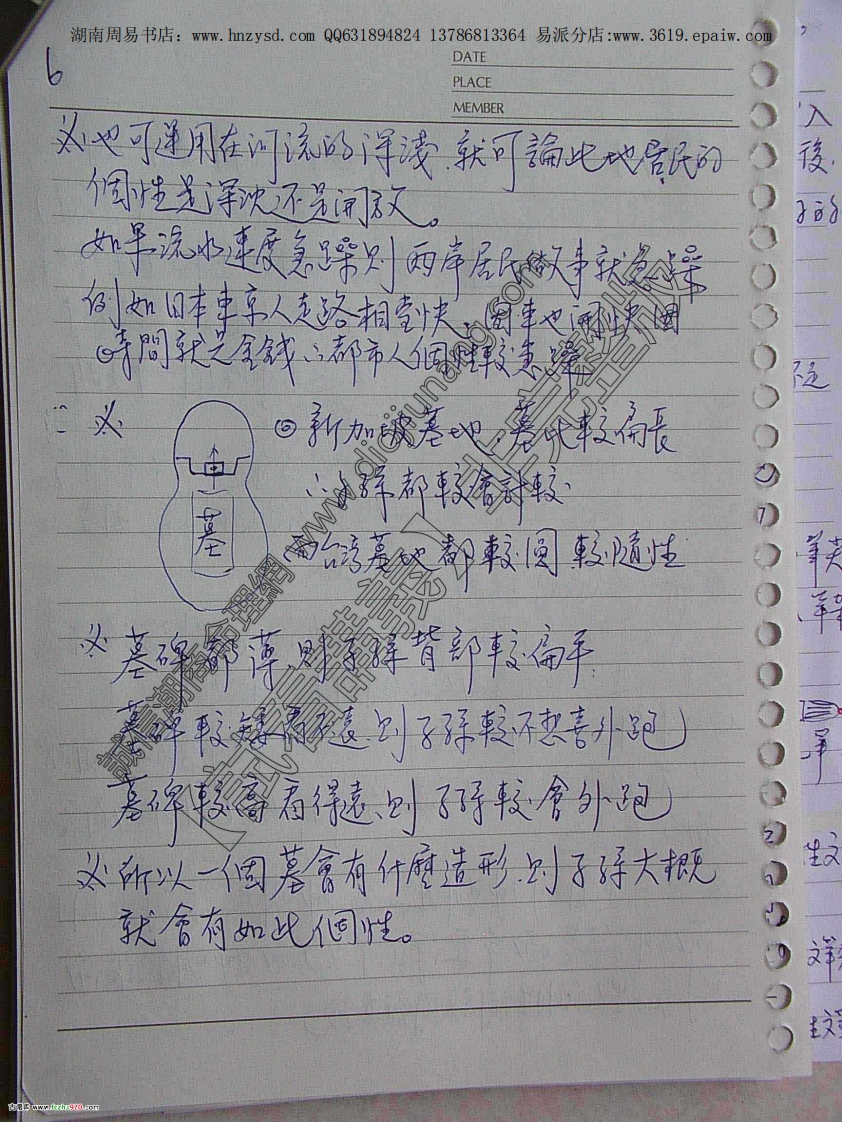 湖南周易书店：www.hnzysd.com QQ631894824 13786813364 易派分店:www.3619.epaiw.com
6
DATE
PLACE
MEMBER
※也可運用在河流的深淺.就可論此地居民的
個性是深沈还是開放。
如果流水速度急躁則兩岸居民做事就急躁
例如日本東京人走路相當快、開車也開快因
時間就是金錢∴都市人個性較急躁
※
◎新加坡墓地，墓比較扁長
∴子孫都較會計較
而台湾墓地都較圓較隨性
墓
※ 墓碑都薄、則子孫背部較扁平.
墓碑較矮看不遠.則子孫較不想喜外跑
墓碑較高看得遠、則子孫較會外跑
※所以一個墓會有什麼造形.則子孫大概
就會有如此個性。
誠信湖南命理網www.dajiunang.com
【武督講義】非完整版